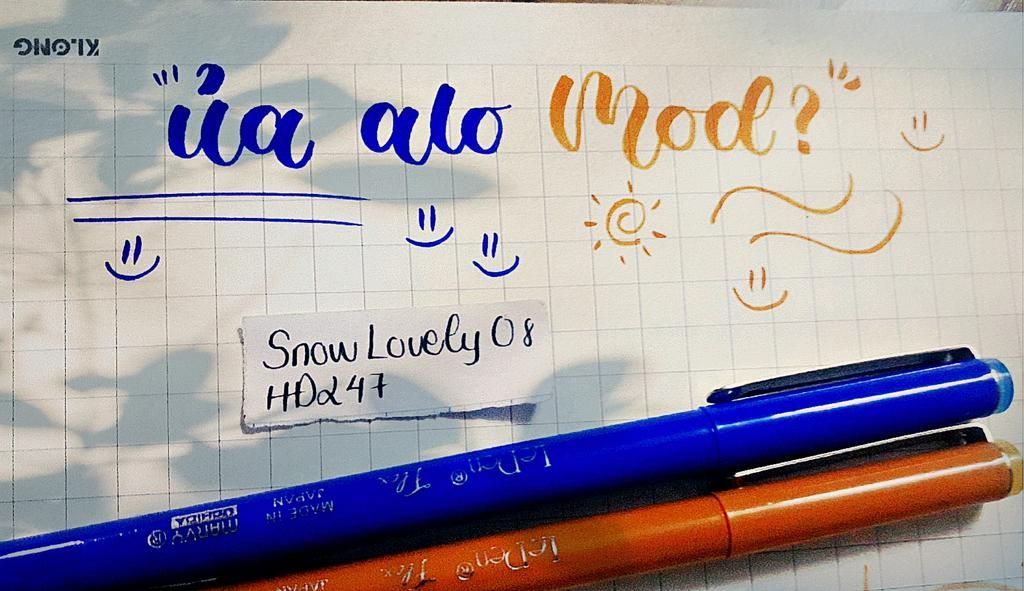 KLONG
"ủa alo Mod?"
Snow Lovely 08
HDα 47
LePen® Flex
MADE IN
JAPAN
MARVY
UCHIDA
®
LePen® Flex
JAPAN